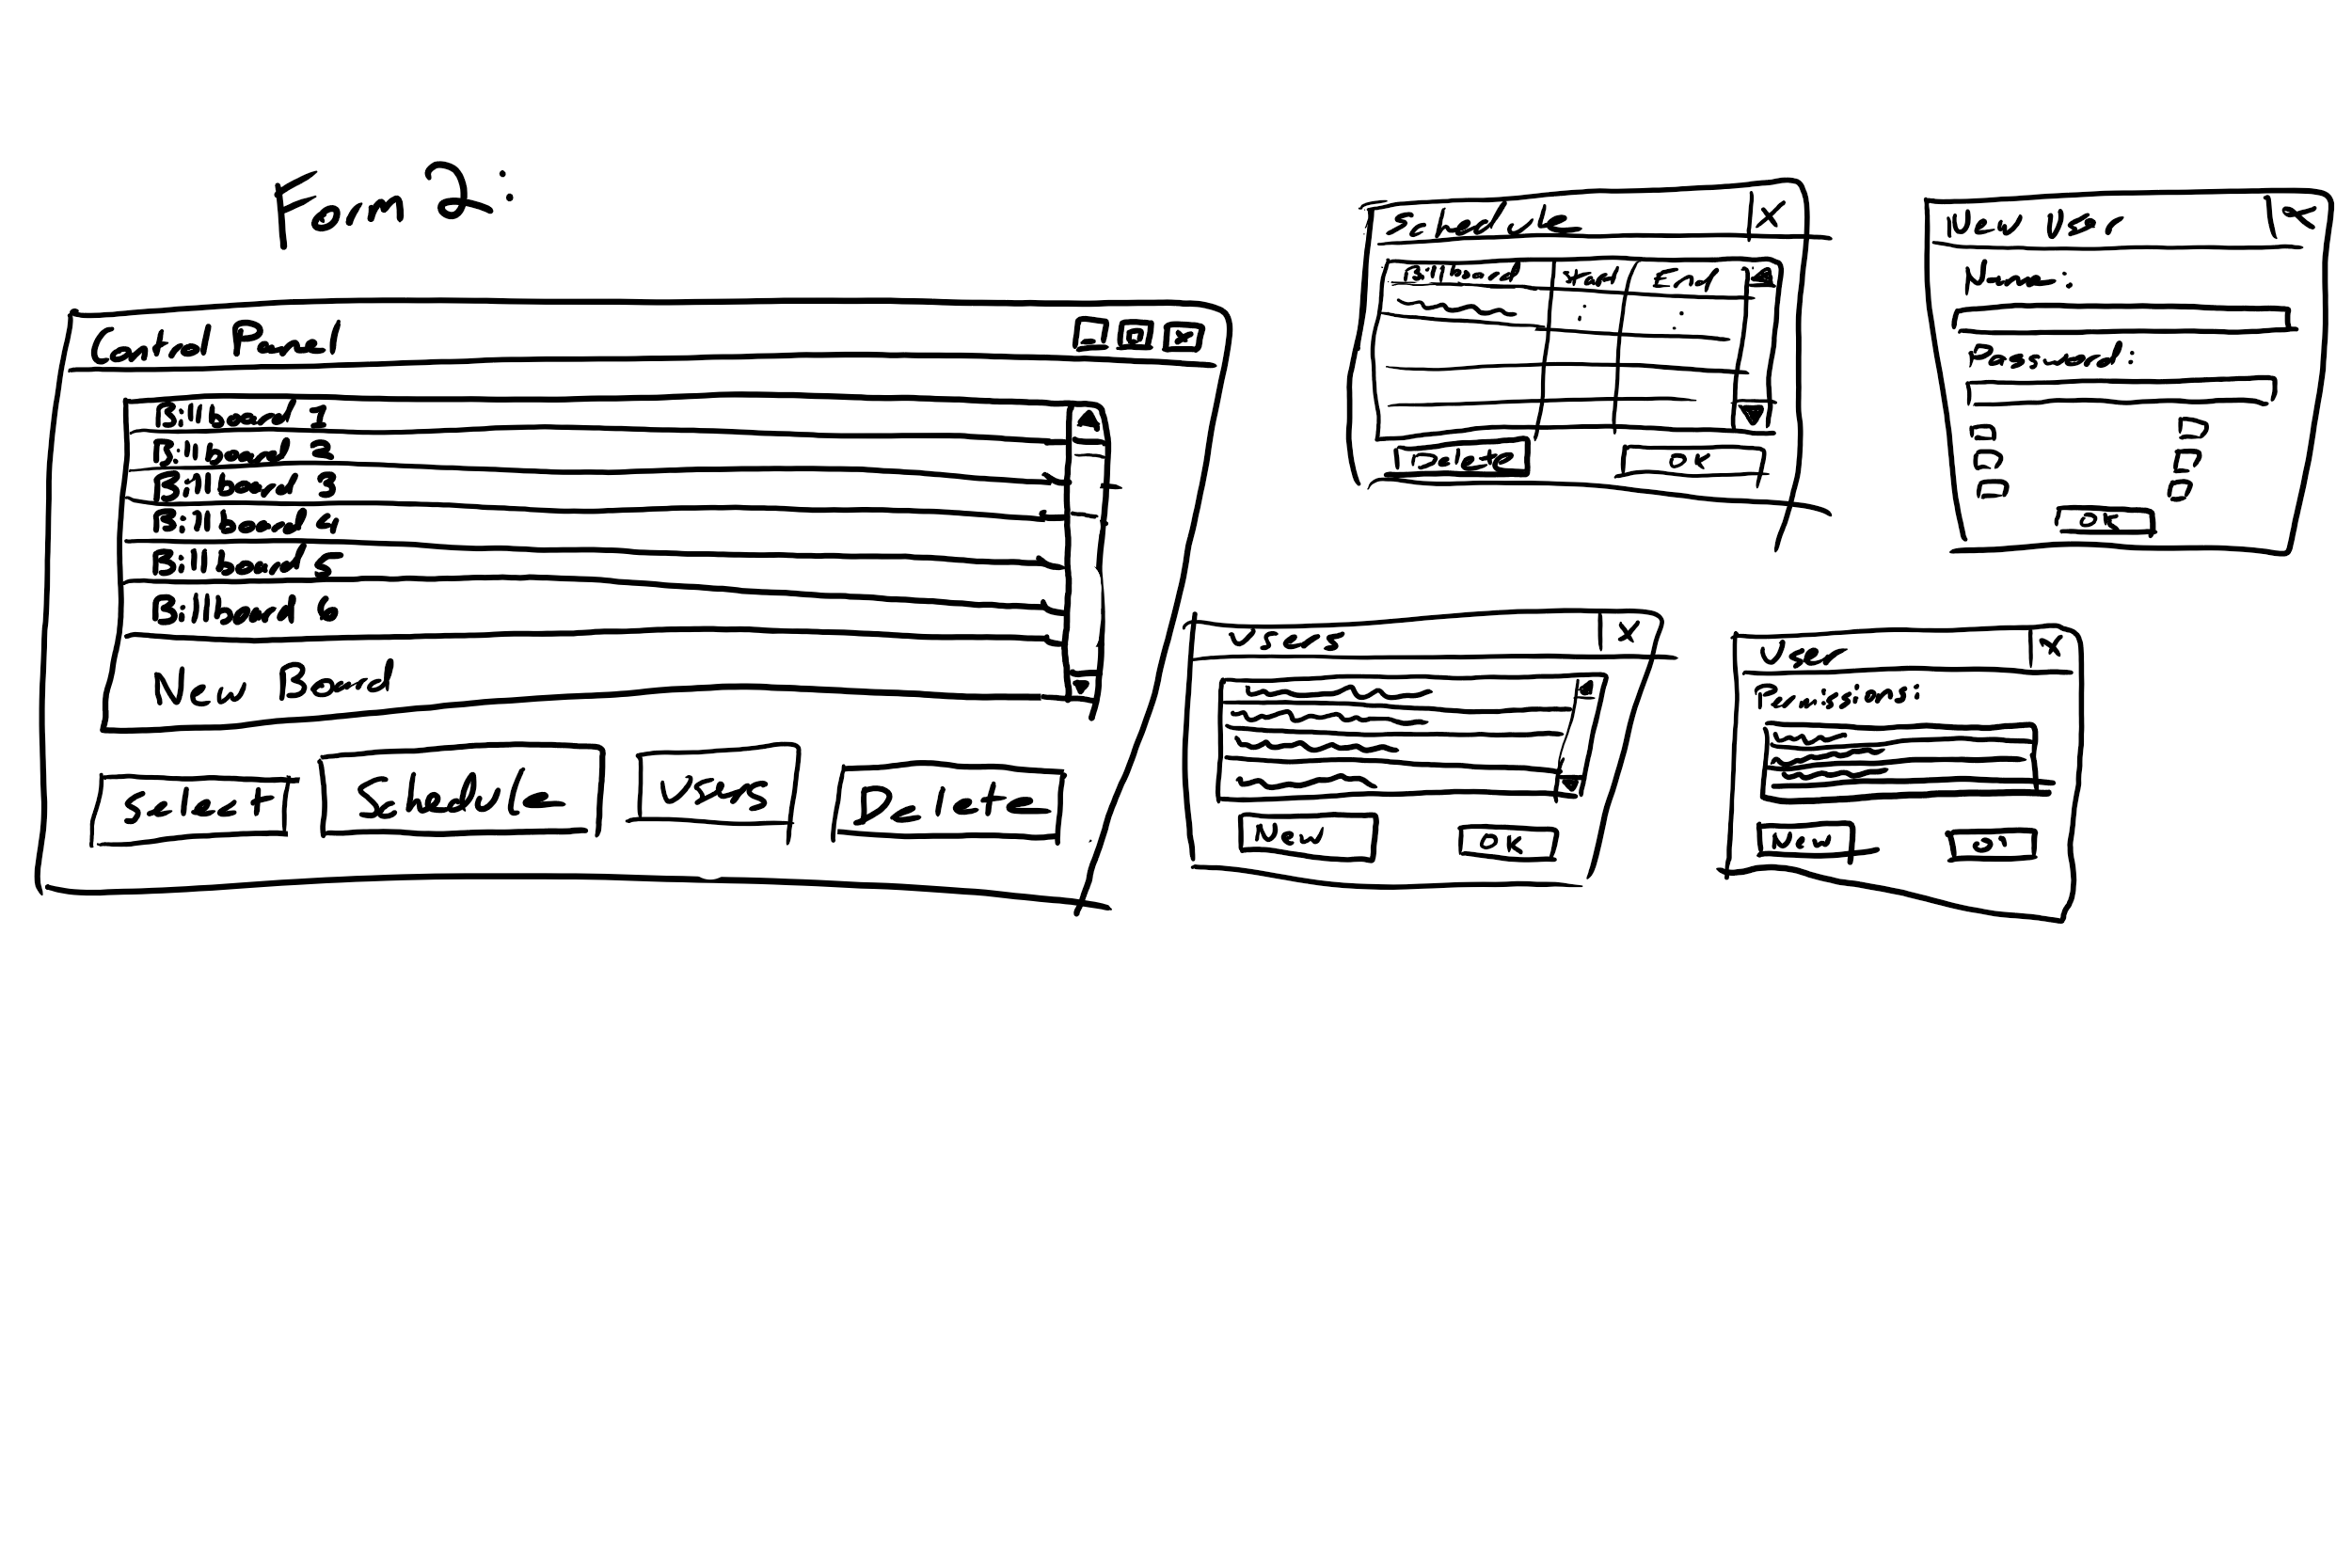 Form 2:
Control Panel
Billboard 1
Billboard 2
Billboard 3
Billboard 4
Billboard 5
Billboard 6
New Board
Select
Schedule
Users
Delete
Schedule X
Billboard Start End
Delete OK
New User X
Name:
Password:
OK
Users X
New OK
User X
Permissions:
New OK